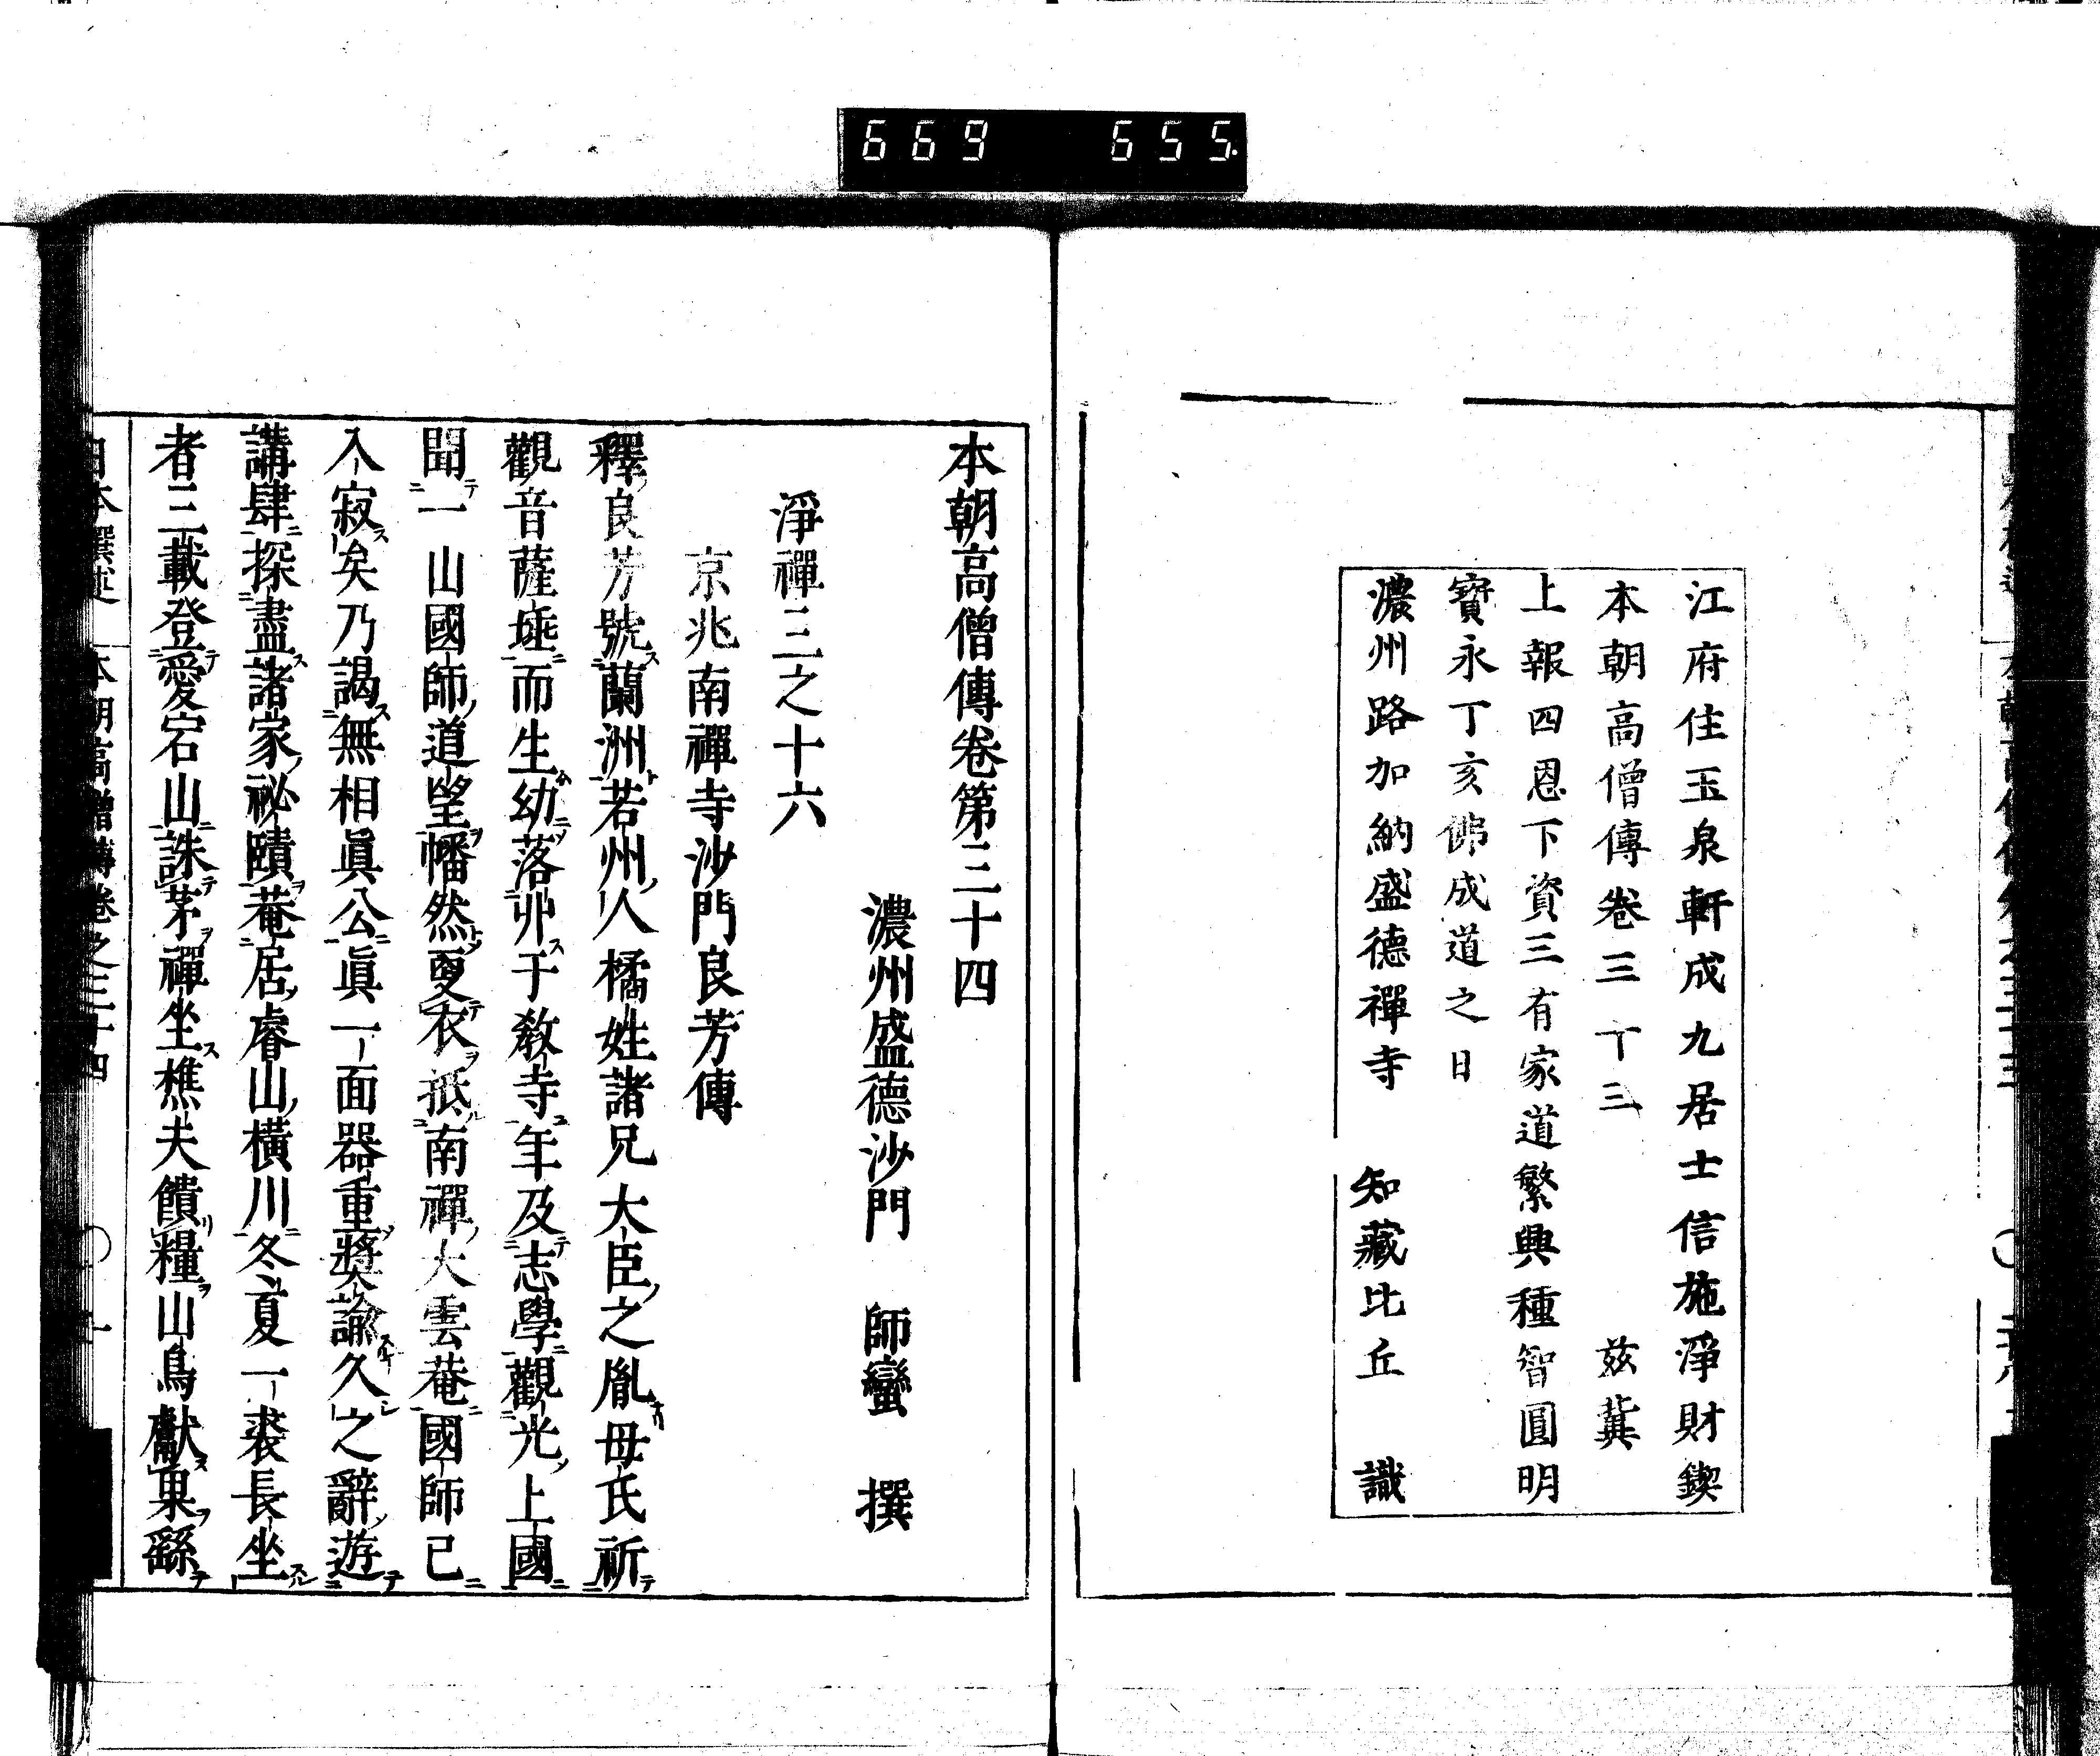 669 655
江府住玉泉軒成九居士信施淨財鍥
本朝高僧傳卷三十三 茲冀
上報四恩下資三有家道繁興種智圓明
寶永丁亥佛成道之日
濃州路加納盛德禪寺 知藏比丘 識
本朝高僧傳卷第三十四
濃州盛德沙門 師蠻 撰
淨禪三之十六
京兆南禪寺沙門良芳傳
釋良芳號蘭洲若州人橘姓諸兄大臣之胤母氏祈
觀音薩埵而生幼落丱于敎寺年及志學觀光上國
聞一山國師道望幡然更衣抵南禪大雲菴國師已
入寂矣乃謁無相眞公眞一面器重奬諭久之辭遊
講肆探盡諸家祕賾菴居睿山橫川冬夏一裘長坐
者三載登愛宕山誅茅禪坐樵夫饋糧山鳥獻果繇
日本撰述 本朝高僧傳卷之三十四 〇 一